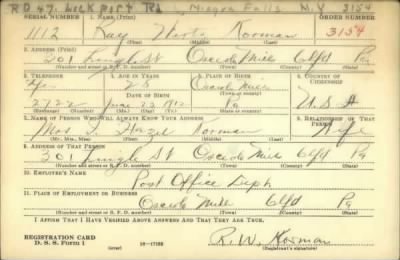 RD 47. Lockport Rd Niagra Falls N.Y 3154
SERIAL NUMBER 1. NAME (Print) ORDER NUMBER
1112 Ray Korman 3154
(First) (Middle) (Last)
2. ADDRESS (Print)
301 Lingle St Osceola Mills Clfd Pa
(Number and street or R. F. D. number) (Town) (County) (State)
3. TELEPHONE 4. AGE IN YEARS 5. PLACE OF BIRTH 6. COUNTRY OF CITIZENSHIP
28 Osceola Mills
DATE OF BIRTH
June 23 1912 Pa U.S.A
7. NAME OF PERSON WHO WILL ALWAYS KNOW YOUR ADDRESS 8. RELATIONSHIP OF THAT PERSON
Mrs. Hazel Korman Wife
(Mr., Mrs., Miss) (First) (Middle) (Last)
9. ADDRESS OF THAT PERSON
301 Lingle St Osceola Mills Clfd Pa
(Number and street or R. F. D. number) (Town) (County) (State)
10. EMPLOYER'S NAME
Post Office Deph
11. PLACE OF EMPLOYMENT OR BUSINESS
Osceola Mills Clfd Pa
(Number and street or R. F. D. number) (Town) (County) (State)
I AFFIRM THAT I HAVE VERIFIED ABOVE ANSWERS AND THAT THEY ARE TRUE.
REGISTRATION CARD
D. S. S. Form 1 R. W. Korman
(Registrant's signature)